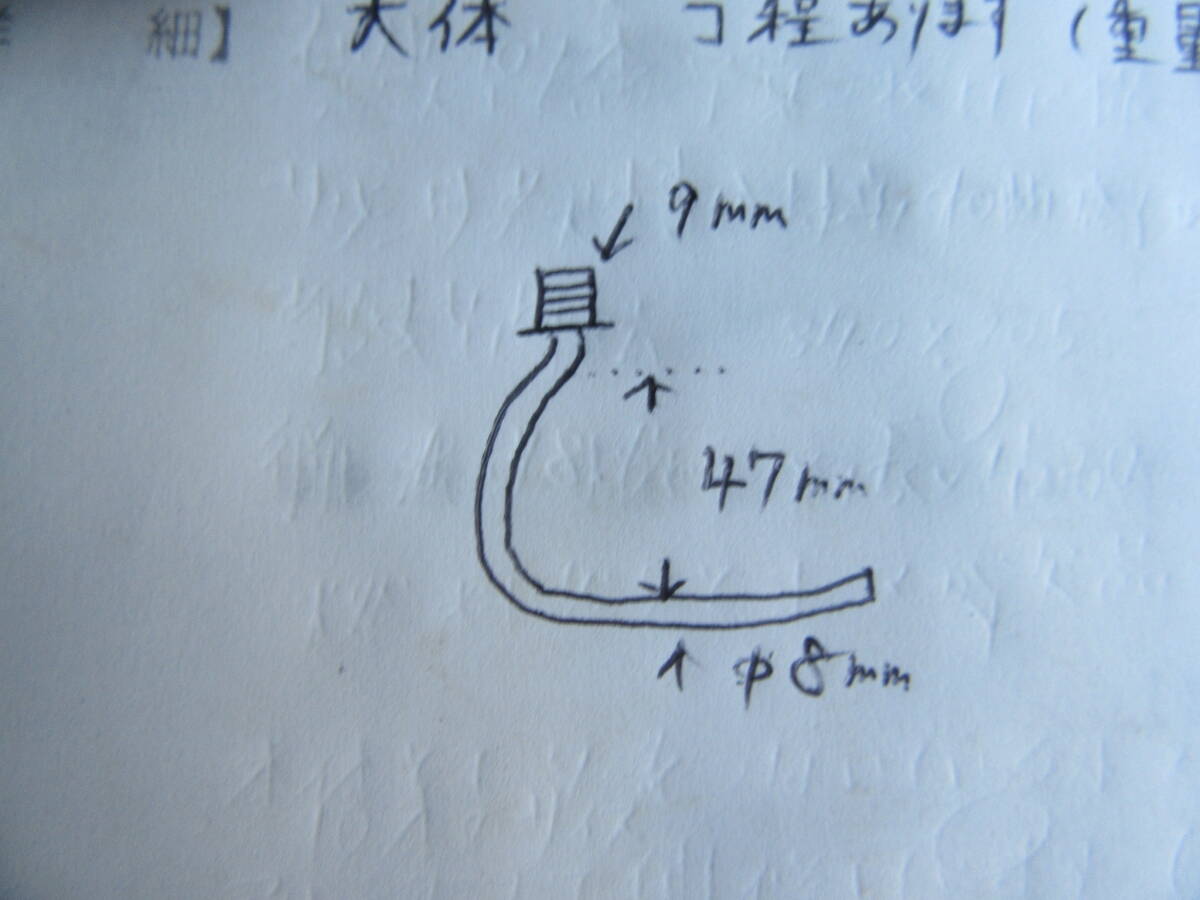 細】 大体 コ程あります (重量
9mm
47mm
φ8mm